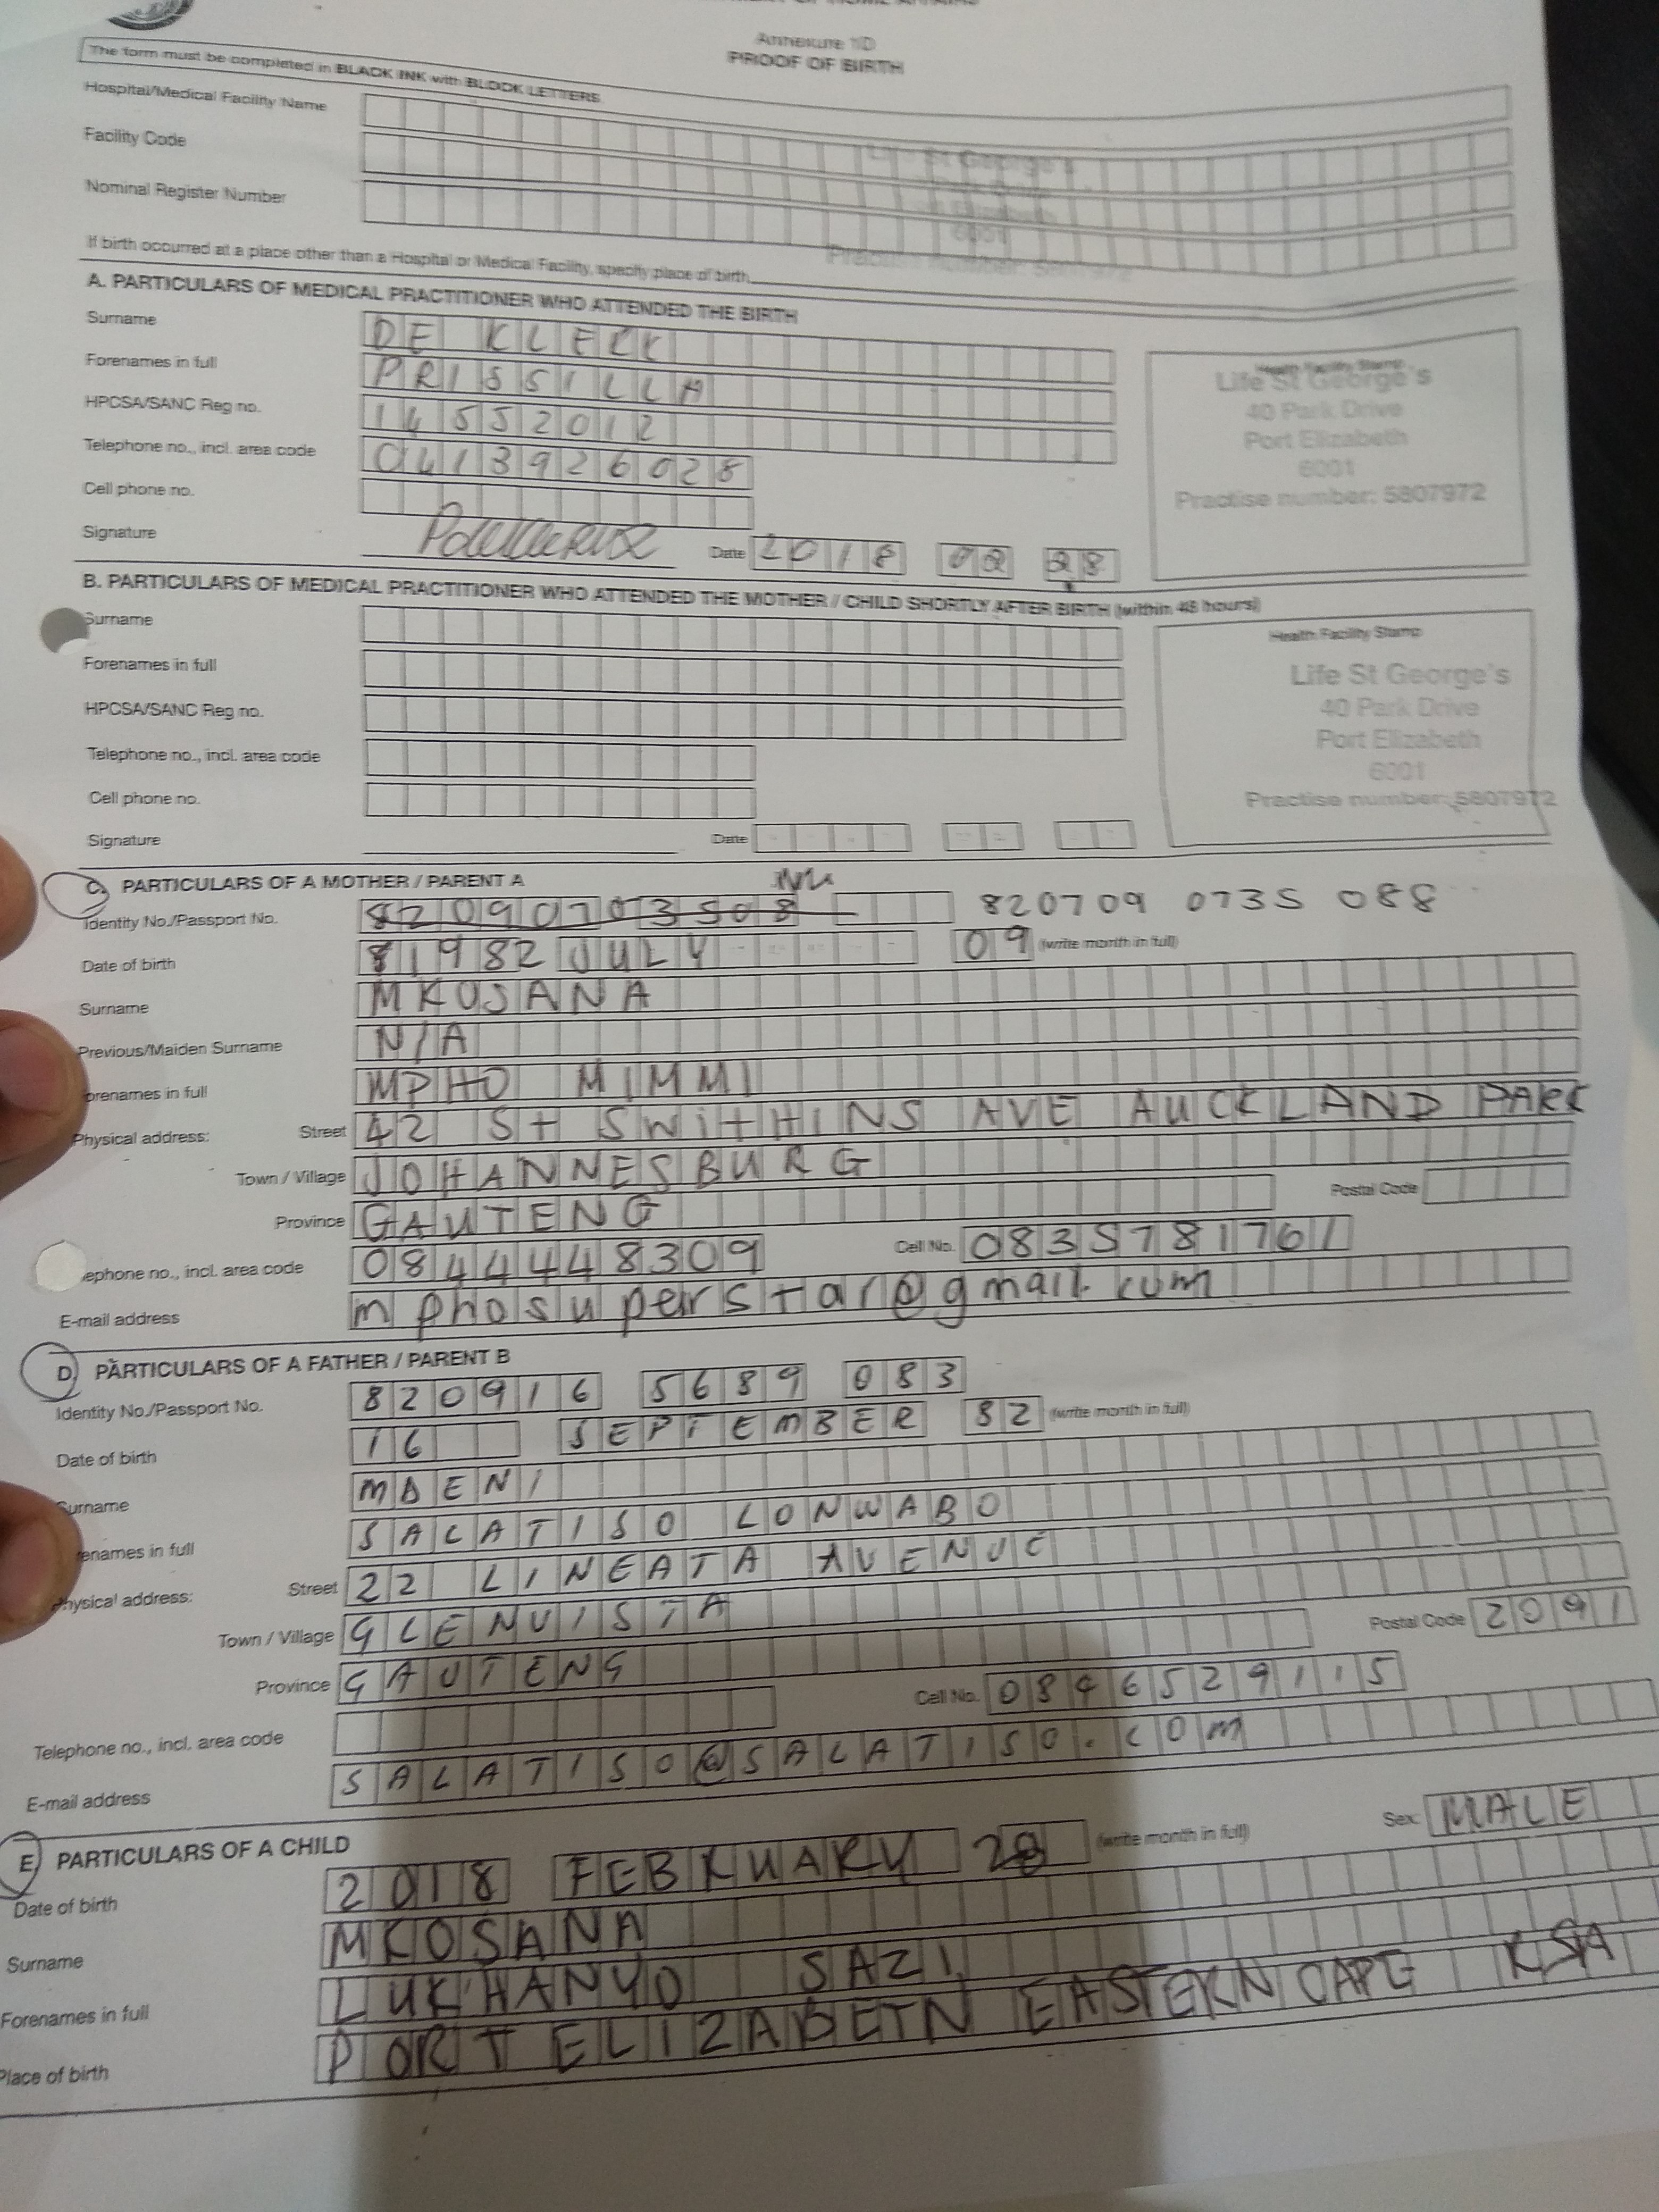 Annexure 1D
PROOF OF BIRTH
The form must be completed in BLACK INK with BLOCK LETTERS
Hospital/Medical Facility Name
Life St George's
Facility Code
Park Drive
Elizabeth
Nominal Register Number
6001
number: 5807972
If birth occurred at a place other than a Hospital or Medical Facility, specify place of birth
A. PARTICULARS OF MEDICAL PRACTITIONER WHO ATTENDED THE BIRTH
Surname DE KLERK
Forenames in full PRISSILLA
HPCSA/SANC Reg no. 14552012
Telephone no., incl. area code 0413926028
Cell phone no.
Signature Date 2018 02 28
Health Facility Stamp
Life St George's
40 Park Drive
Port Elizabeth
6001
Practise number: 5807972
B. PARTICULARS OF MEDICAL PRACTITIONER WHO ATTENDED THE MOTHER / CHILD SHORTLY AFTER BIRTH (within 48 hours)
Surname
Forenames in full
HPCSA/SANC Reg no.
Telephone no., incl. area code
Cell phone no.
Signature Date
Health Facility Stamp
Life St George's
40 Park Drive
Port Elizabeth
6001
Practise number: 5807972
C. PARTICULARS OF A MOTHER / PARENT A
Identity No./Passport No. 82090703508 820709 0735 088
Date of birth 1982 JULY 09 (write month in full)
Surname MKOSANA
Previous/Maiden Surname N/A
orenames in full MPHO MIMMI
Physical address: Street 42 St SWitHINS AVE AUCKLAND PARK
Town / Village JOHANNESBURG
Province GAUTENG Postal Code
ephone no., incl. area code 0844448309 Cell No. 0835781761
E-mail address mphosuperstar@gmail.com
D. PARTICULARS OF A FATHER / PARENT B
Identity No./Passport No. 820916 5689 083
Date of birth 16 SEPTEMBER 82 (write month in full)
Surname MDENI
renames in full SALATISO LONWABO
Physical address: Street 22 LINEATA AVENUE
Town / Village GLENVISTA Postal Code 2091
Province GAUTENG Cell No. 0846529115
Telephone no., incl. area code
E-mail address SALATISO@SALATISO.COM
E. PARTICULARS OF A CHILD Sex: MALE
Date of birth 2018 FEBRUARY 28 (write month in full)
Surname MKOSANA
Forenames in full LUKHANYO SAZI
Place of birth PORT ELIZABETH EASTERN CAPE RSA